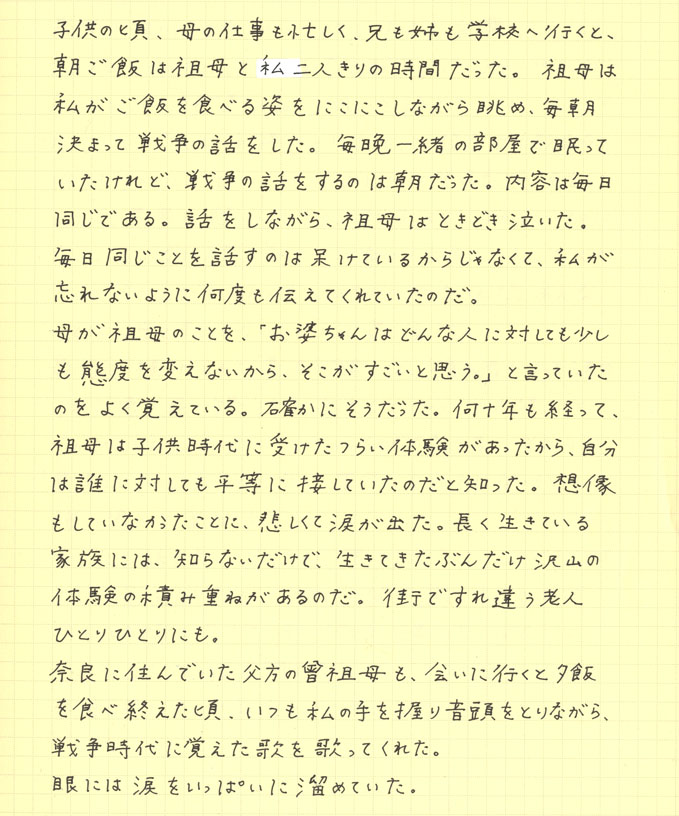 子供の頃、母の仕事も忙しく、兄も姉も学校へ行くと、
朝ご飯は祖母と私二人きりの時間だった。祖母は
私がご飯を食べる姿をにこにこしながら眺め、毎朝
決まって戦争の話をした。毎晩一緒の部屋で眠って
いたけれど、戦争の話をするのは朝だった。内容は毎日
同じである。話をしながら、祖母はときどき泣いた。
毎日同じことを話すのは呆けているからじゃなくて、私が
忘れないように何度も伝えてくれていたのだ。
母が祖母のことを、「お婆ちゃんはどんな人に対しても少し
も態度を変えないから、そこがすごいと思う。」と言っていた
のをよく覚えている。確かにそうだった。何十年も経って、
祖母は子供時代に受けたつらい体験があったから、自分
は誰に対しても平等に接していたのだと知った。想像
もしていなかったことに、悲しくて涙が出た。長く生きている
家族には、知らないだけで、生きてきたぶんだけ沢山の
体験の積み重ねがあるのだ。街ですれ違う老人
ひとりひとりにも。
奈良に住んでいた父方の曾祖母も、会いに行くと夕飯
を食べ終えた頃、いつも私の手を握り音頭をとりながら、
戦争時代に覚えた歌を歌ってくれた。
眼には涙をいっぱいに溜めていた。